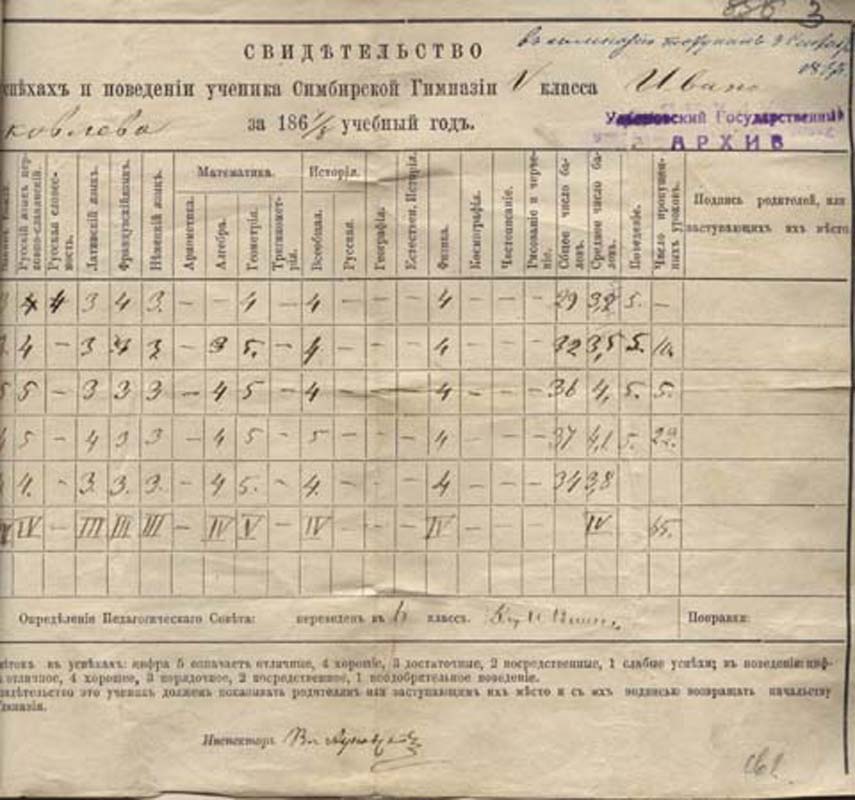 836 3
СВИДѢТЕЛЬСТВО
спѣхахъ и поведеніи ученика Симбирской Гимназіи V класса Ивана
ковлева за 186 учебный годъ.
Ульяновский Государственный
АРХИВ
Математика. Исторія.
Русскій языкъ цер-
ковно-славянскій.
Русская словес-
ность.
Латинскій языкъ.
Французскій языкъ.
Нѣмецкій языкъ.
Ариѳметика.
Алгебра.
Геометрія.
Тригономет-
рія.
Всеобщая.
Русская.
Географія.
Естествен. Исторія.
Физика.
Космографія.
Чистописаніе.
Рисованіе и черче-
ніе.
Общее число бал-
ловъ.
Среднее число бал-
ловъ.
Поведеніе.
Число пропущен-
ныхъ уроковъ.
Подпись родителей, или
заступающихъ ихъ мѣсто.
4 4 3 4 3. – – 4 – 4 – – – 4 – – – 29 3,2 5. –
4 – 3 3 3 – 3 5. – 4 – – – 4 – – – 32 3,5 5. 10.
5 – 3 3 3 – 4 5 – 4 – – – 4 – – – 36 4, 5. 5.
5 – 4 3 3 – 4 5 – 5 – – – 4 – – – 37 4,1 5. 29.
4. – 3. 3. 3. – 4 5. – 4. – – – 4 – – – 34 3,8
IV – III III III – IV V – IV – – – IV – – – IV
Опредѣленіи Педагогическаго Совѣта: переведенъ въ классъ. Поправки:
мѣтокъ въ успѣхахъ: цифра 5 означаетъ отличные, 4 хорошіе, 3 достаточные, 2 посредственные, 1 слабые успѣхи; въ поведеніи: циф-
отличное, 4 хорошее, 3 порядочное, 2 посредственное, 1 неодобрительное поведеніе.
видѣтельство это ученикъ долженъ показывать родителямъ или заступающимъ ихъ мѣсто и съ ихъ подписью возвращать начальству
имназіи.
Инспекторъ